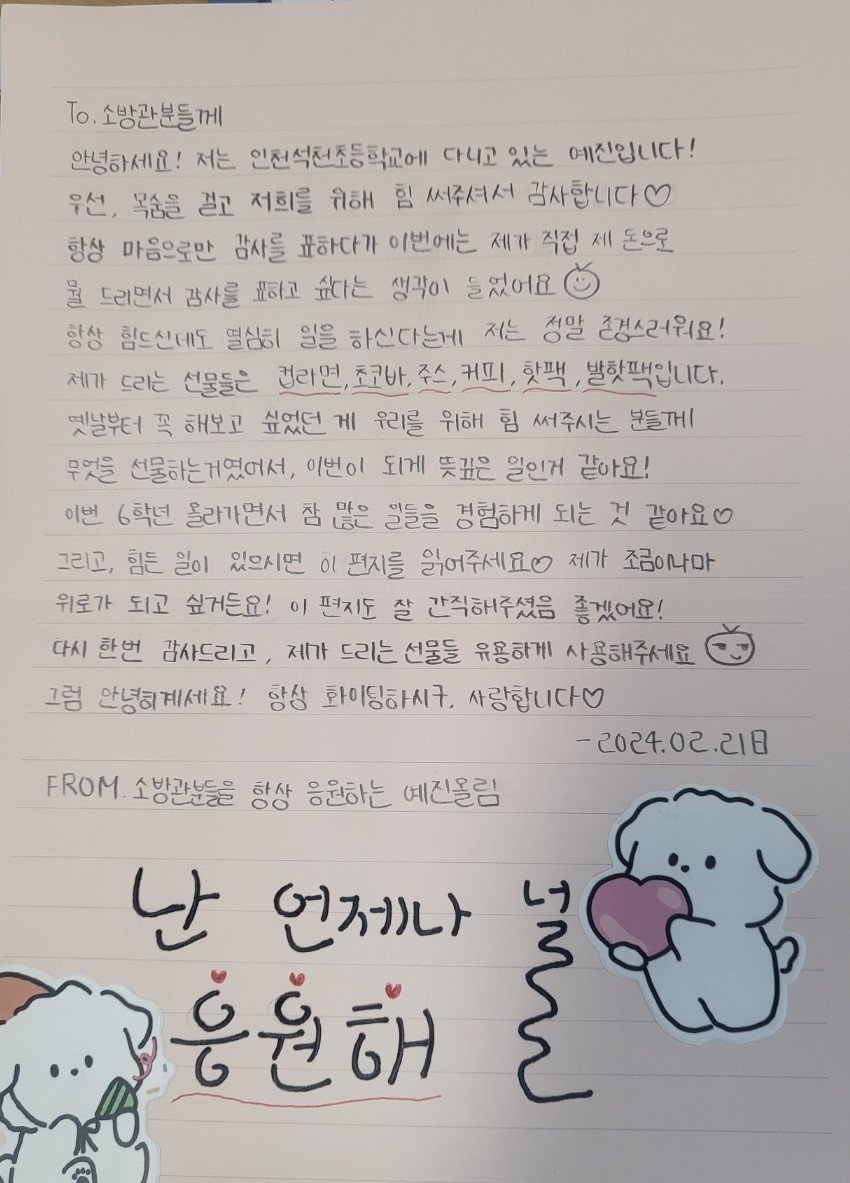 To. 소방관분들께
안녕하세요! 저는 인천석천초등학교에 다니고 있는 예진입니다!
우선, 목숨을 걸고 저희를 위해 힘 써주셔서 감사합니다♡
항상 마음으로만 감사를 표하다가 이번에는 제가 직접 제 돈으로
뭘 드리면서 감사를 표하고 싶다는 생각이 들었어요
항상 힘드신데도 열심히 일을 하신다는게 저는 정말 존경스러워요!
제가 드리는 선물들은 컵라면, 초코바, 주스, 커피, 핫팩, 발핫팩입니다.
옛날부터 꼭 해보고 싶었던 게 우리를 위해 힘 써주시는 분들께
무엇을 선물하는거였어서, 이번이 되게 뜻깊은 일인거 같아요!
이번 6학년 올라가면서 참 많은 일들을 경험하게 되는 것 같아요♡
그리고, 힘든 일이 있으시면 이 편지를 읽어주세요♡ 제가 조금이나마
위로가 되고 싶거든요! 이 편지도 잘 간직해주셨음 좋겠어요!
다시 한번 감사드리고, 제가 드리는 선물들 유용하게 사용해주세요
그럼 안녕히계세요! 항상 화이팅하시구, 사랑합니다♡
-2024.02.21日
FROM. 소방관분들을 항상 응원하는 예진올림
난 언제나 널
응원해